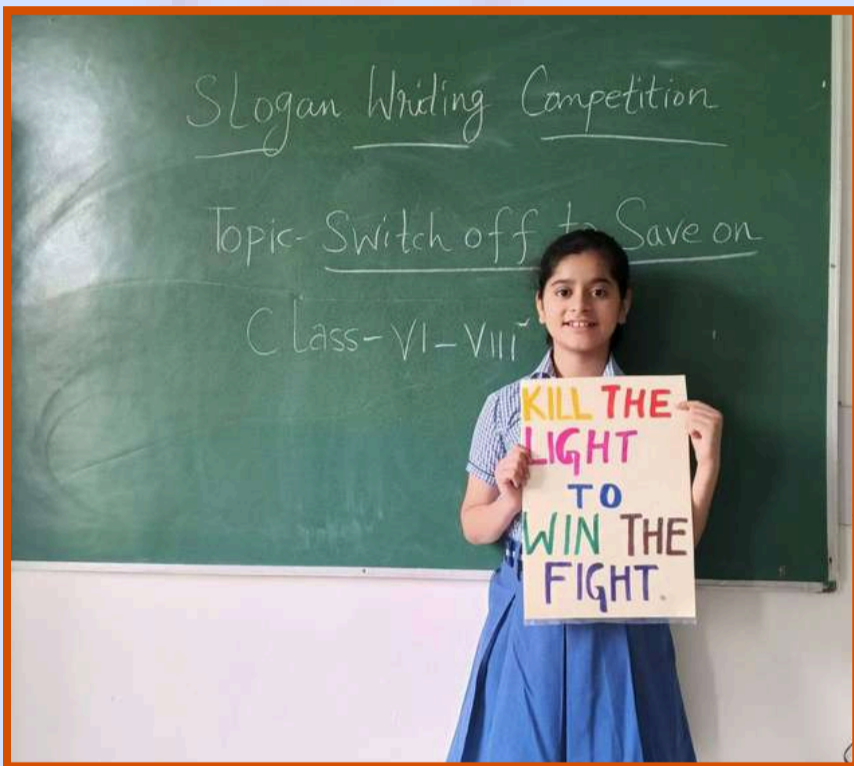 Slogan Writing Competition
Topic- Switch off to Save on
Class-VI-VIII
KILL THE
LIGHT
TO
WIN THE
FIGHT.